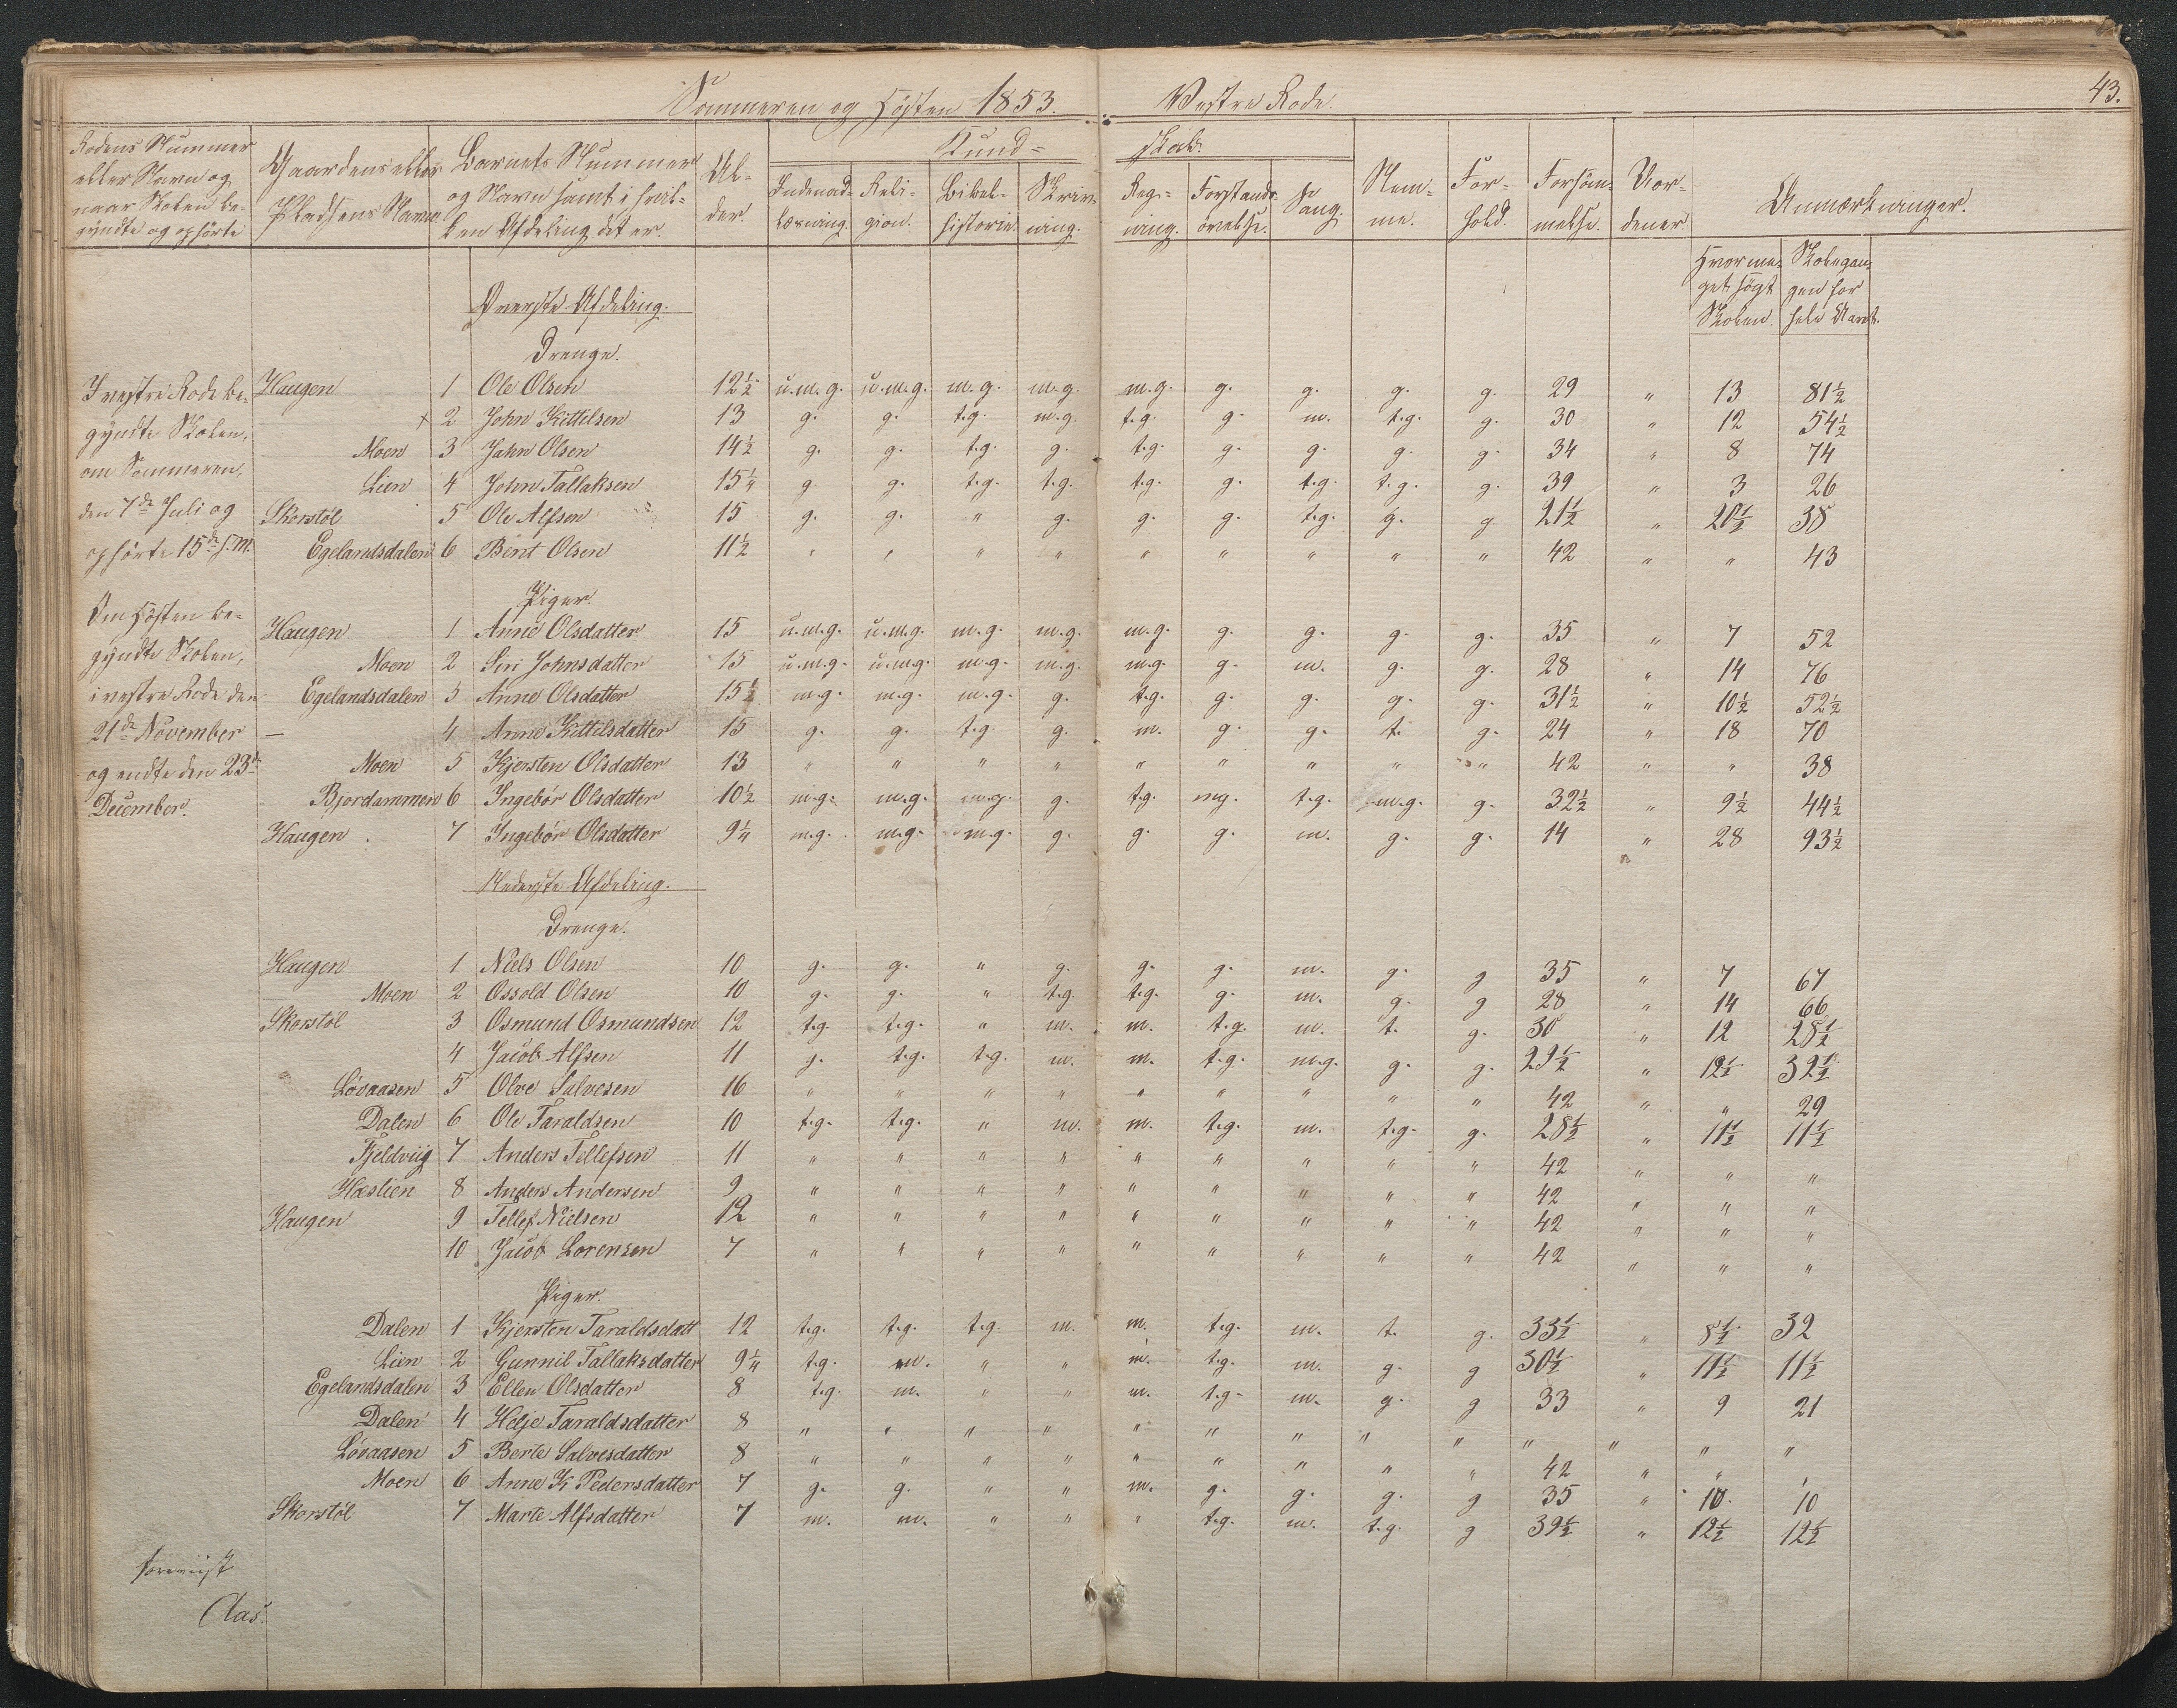 Sommeren og Høsten 1853. Vestre Rode. 43.
Rodens Nummer eller Navn og naar Skolen begyndte og ophørte
Gaardens eller Pladsens Navn
Barnets Nummer og Navn samt i hvilken Afdeling det er.
Alder.
Kundskab.
Indenadlæsning. Religion. Bibelhistorie. Skrivning. Regning. Forstandsøvelse. Sang.
Nemme. Forhold. Forsømmelse. Vordener Anmærkninger.
Hvormeget søgt Skolen. Skolegangen for hele Aaret.
I vestre Rode begyndte Skolen, om Sommeren, den 7de Juli og ophørte 15de s. M.
Om Høsten begyndte Skolen, i vestre Rode den 21de November og endte den 23de December.
Øverste Afdeling.
Drenge.
Haugen 1 Ole Olsen 12½ u.m.g. u.m.g. m.g. m.g. m.g. g. g. g. g. 29 " 13 81½
+ 2 John Kittilsen 13 g. g. t.g. m.g. t.g. g m. t.g. g. 30 " 12 54½
Moen 3 Jahn Olsen 14½ g. g. t.g. g. t.g. g. g. g. g. 34 " 8 74
Lien 4 John Tallaksen 15¼ g. g. t.g. t.g. t.g. g. t.g. t.g. g. 39 " 3 26
Skorstøl 5 Ole Alfsen 15 g. g. " g. g. g. t.g. g. g. 21½ " 20½ 38
Egelandsdalen 6 Bent Olsen 11½ " " " " " " " " " 42 " " 43
Piger.
Haugen 1 Anne Olsdatter 15 u.m.g. u.m.g. m.g. m.g. m.g. g. g. g. g. 35 " 7 52
Moen 2 Siri Johnsdatter 15 u.m.g. u.m.g. m.g. m.g. m.g. g. m. g. g. 28 " 14 76
Egelandsdalen 3 Anne Olsdatter 15½ m.g. m.g. m.g. g. t.g. g. g. g. g. 31½ " 10½ 52½
— 4 Anne Kittilsdatter 15 g. g. t.g. g. m. g. g. t. g. 24 " 18 70
Moen 5 Kjersten Olsdatter 13 " " " " " " " " " 42 " " 38
Bjordammen 6 Ingebør Olsdatter 10½ m.g. m.g. m.g. g. t.g. mg. t.g. m.g. g. 32½ " 9½ 44½
Haugen. 7 Ingebør Olsdatter 9¼ m.g. m.g. m.g. g. g. g. m. g. g. 14 " 28 93½
Nederste Afdeling.
Drenge.
Haugen 1 Niels Olsen 10 g. g. " g. g. g. m. g. g 35 " 7 67
Moen 2 Ossold Olsen 10 g. g. " t.g. t.g. g. m. g. g 28 " 14 66
Skorstøl 3 Osmund Osmundsen 12 t.g. t.g. " m. m. t.g. m. t. g. 30 " 12 28½
4 Jacob Alfsen 11 g. t.g. t.g. m. m. t.g. m.g. g. g. 29½ " 12½ 32½
Løvaasen 5 Olve Salvesen 16 " " " " " " " " " 42 " " 29
Dalen 6 Ole Taraldsen 10 t.g. t.g. " m. m. t.g. m. t.g. g. 28½ " 11½ 11½
Fjeldviig 7 Anders Tellefsen 11 " " " " " " " " " 42 " " "
Hæstien 8 Anders Andersen 9 " " " " " " " " " 42 " " "
Haugen 9 Tellef Nielsen 12 " " " " " " " " " 42 " " "
10 Jacob Lorensen 7 " " " " " " " " " 42 " " "
Piger.
Dalen 1 Kjersten Taraldsdatt 12 t.g. t.g. t.g. m. m. t.g. m. t. g. 33½ " 8½ 32
Lien 2 Gunnil Tallaksdatter 9¼ t.g. m. " " m. t.g. m. g. g 30½ " 11½ 11½
Egelandsdalen 3 Ellen Olsdatter 8 t.g. m. " " m. t.g. m. g. g 33 " 9 21
Dalen 4 Helje Taraldsdatter 8 " " " " " " " " " " " " "
Løvaasen 5 Berte Salvesdatter 8 " " " " " " " " " 42 " "
Moen 6 Anne K Pedersdatter 7 g. g. " " m. g. g. g. g 35 " 10. 10
Skorstøl 7 Marte Alfsdatter 7 m. m. " " " t.g. m. t.g. g 39½ " 12½ 12½
foreviist
Aas.